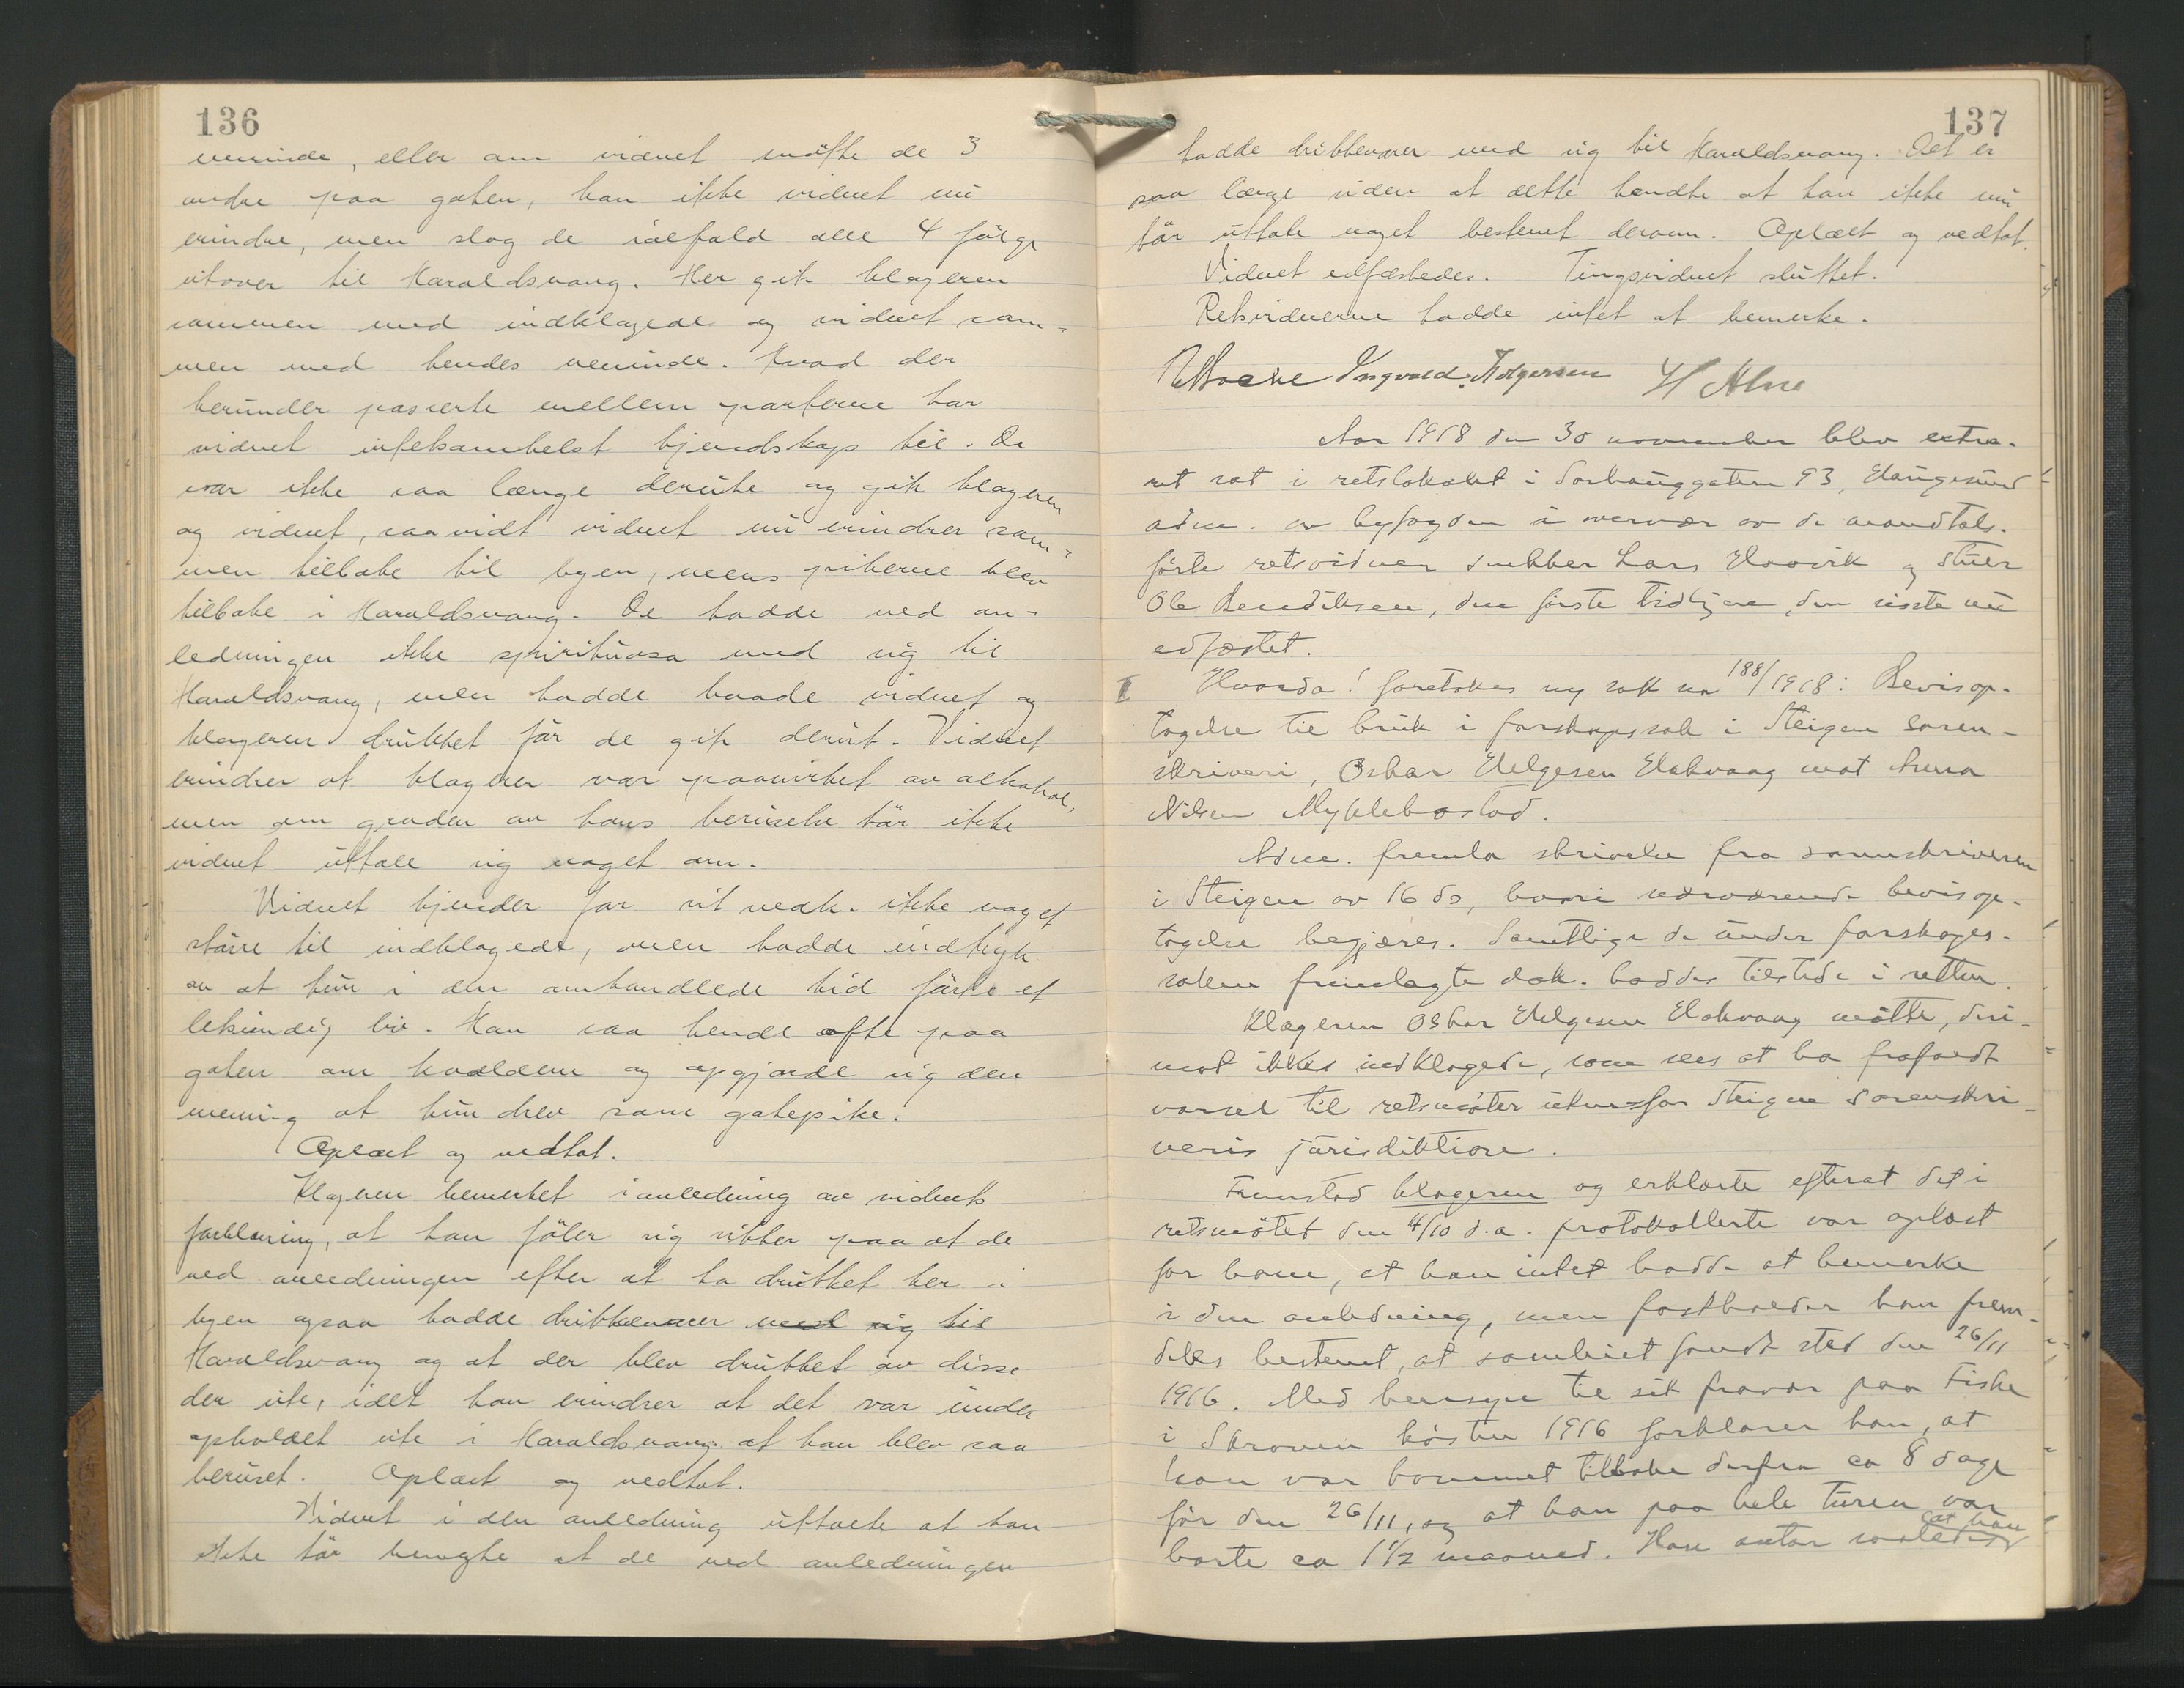 136
veninde, eller om vidnet møtte de 3
andre paa gaten, kan ikke vidnet nu
erindre, men slog de ialfald alle 4 følge
utover til Haraldsvang. Her gik klageren
sammen med indklagede og vidnet sam-
men med hendes veninde. Hvad der
herunder passerte mellem parterne har
vidnet intetsomhelst kjendskap til. De
var ikke saa længe derute og gik klageren
og vidnet, saavidt vidnet nu erindrer sam-
men tilbake til byen, mens pikerne blev
tilbake i Haraldsvang. De hadde ved an-
ledningen ikke spirituosa med sig til
Haraldsvang, men hadde baade vidnet og
klageren drukket før de gik derut. Vidnet
erindrer at klageren var paavirket av alkohol,
men om graden av hans beruselse tør ikke
vidnet uttale sig noget om.
Vidnet kjender for sit vedk. ikke noget
større til indklagede, men hadde indtryk
av at hun i den omhandlede tid førte et
lettsindig liv. Han saa hende ofte paa
gaten om kvælden og opgjorde sig den
mening at hun drev som gatepike.
Oplæst og vedtat.
Klageren bemerket i anledning av vidnets
forklaring, at han føler sig sikker paa at de
ved anledningen efter at ha drukket her i
byen ogsaa hadde drikkevarer med sig til
Haraldsvang og at der blev drukket av disse
der ute, idet han erindrer at det var under
opholdet ute i Haraldsvang at han blev saa
beruset. Oplæst og vedtat.
Vidnet i den anledning uttalte at han
ikke tør benegte at de ved anledningen
137
hadde drikkevarer med sig til Haraldsvang. Det er
saa længe siden at dette hendte at han ikke nu
tør uttale noget bestemt derom. Oplæst og vedtat.
Vidnet edfæstedes. Tingsvidnet sluttet.
Retsvidnerne hadde intet at bemerke.
Ingvald Holgersen
Aar 1918 den 30 november blev extra-
ret sat i retslokalet i Sørhauggaten 93, Haugesund
adm. av byfogden i overvær av de mandtals-
førte retsvidner snekker Lars Haavik og stuer
Ole Bendiksen, den første tidligere, den sidste nu
edfæstet.
I Hvorda! foretokes ny sak no 188/1918: Bevisop-
tagelse til bruk i farskapssak i Steigen soren-
skriveri, Oskar Helgesen Hakvaag mot Anna
Nilsen Myklebostad.
Adm. fremla skrivelse fra sorenskriveren
i Steigen av 16 ds, hvori nærværende bevisop-
tagelse begjæres. Samtlige de under farskaps-
saken fremlagte dok. haddes tilstede i retten.
Klageren Oskar Helgesen Hakvaag møtte, deri-
mot ikke indklagede, som sees at ha frafaldt
varsel til retsmøter utenfor Steigen sorenskri-
veris jurisdiktion.
Fremstod klageren og erklærte efterat det i
retsmøtet den 4/10 d.a. protokollerte var oplæst
for ham, at han intet hadde at bemerke
i den anledning, men fastholder han frem-
deles bestemt, at samleiet fandt sted den 26/11
1916. Med hensyn til sit fravær paa Fiske
i Skroven høsten 1916 forklarer han, at
han var kommet tilbake derfra ca 8 dage
før den 26/11, og at han paa hele turen var
borte ca 1 1/2 maaned. Han antar saaledes
at han